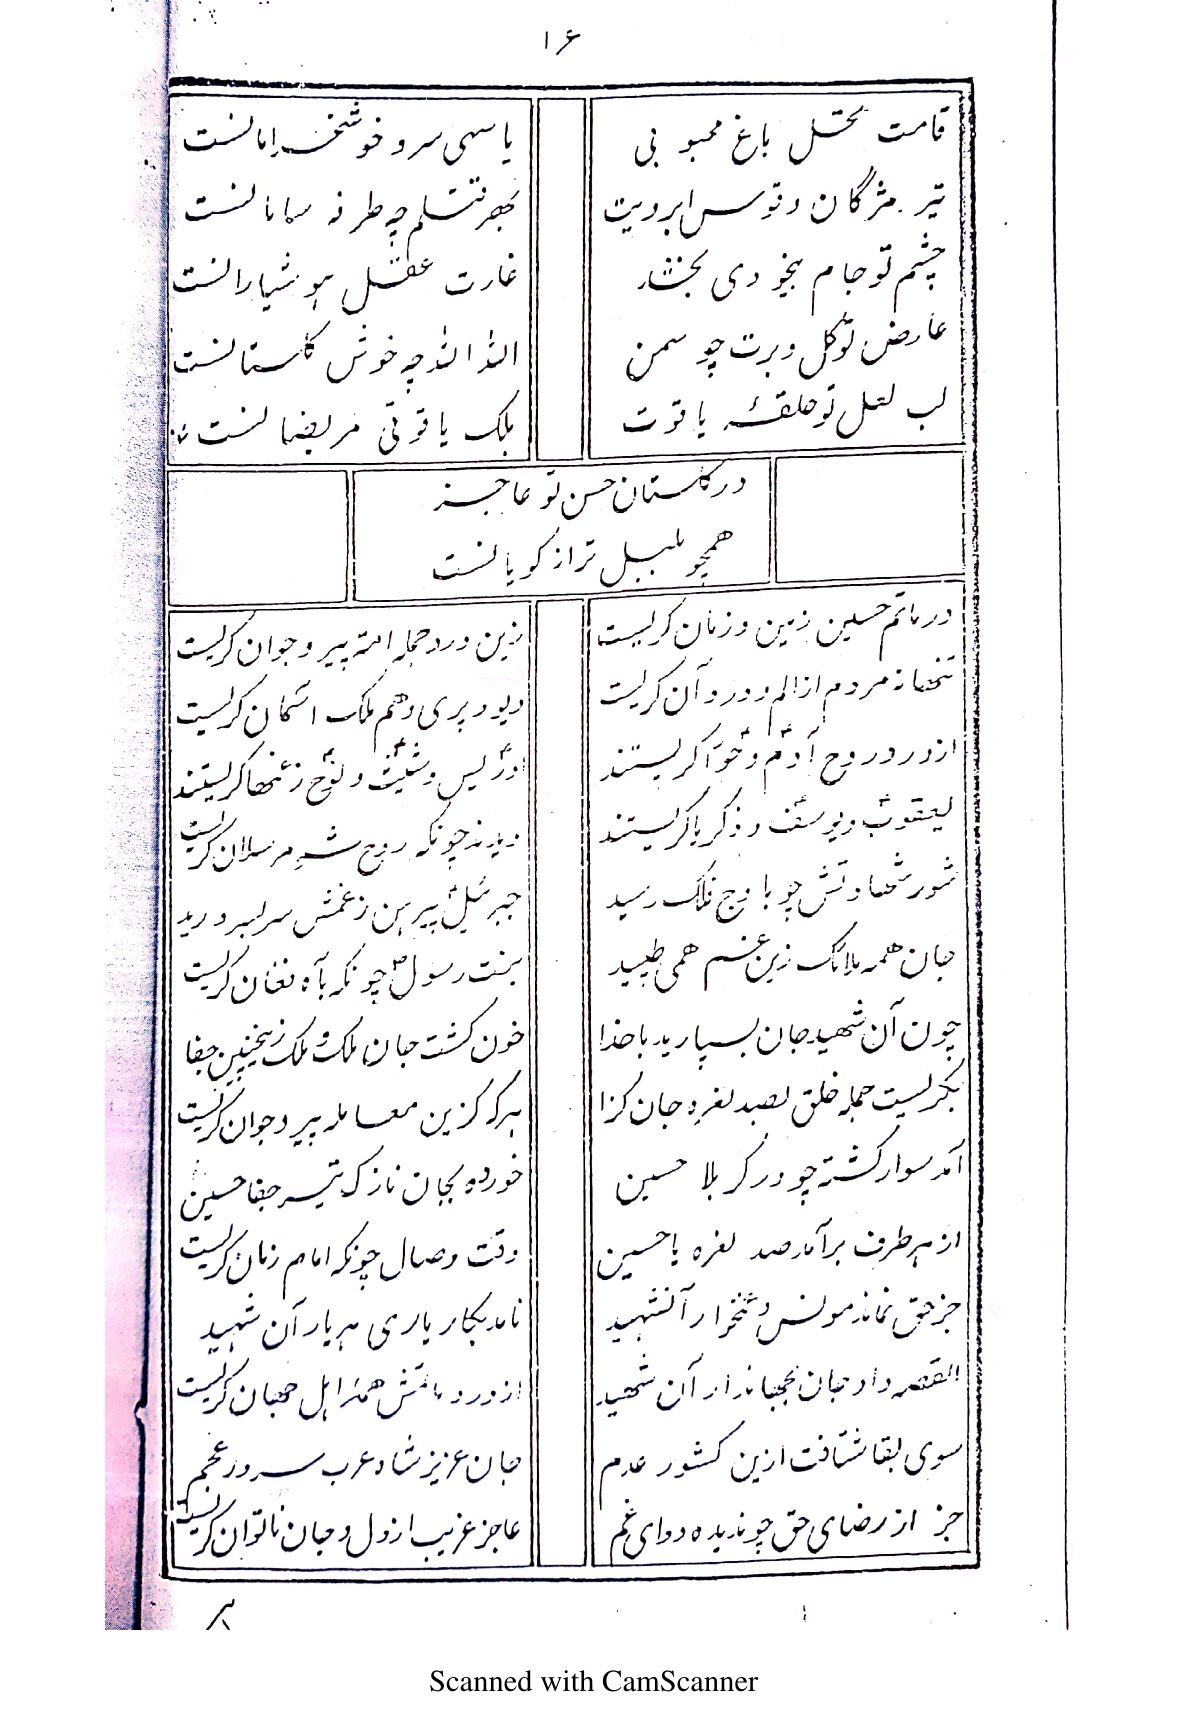 ۱۶
قامت نخل باغ محبوبی
یا سهی سرو خوشخرامانست
تیر مژگان و قوس ابرویت
بهر قتلم چه طرفه سامانست
چشم تو جام بیخودی بخشد
غارت عقل هوشیارانست
عارض تو گل و برت چو سمن
الله الله چه خوش گلستانست
لب لعل تو حلقهٔ یاقوت
بلک یاقوتی مریضانست
در گلستان حسن تو عاجز
همچو بلبل ترانه گویانست
در ماتم حسین زمین و زمان گریست
زین درد جمله امّة پیر و جوان گریست
تنها نه مردم از الم و درد آن گریست
دیو و پری و هم ملک آسمان گریست
از درد روح آدمؑ و حوّا گریستند
ادریسؑ و شیثؑ و نوحؑ ز غمها گریستند
یعقوبؑ و یوسفؑ و ذکریا گریستند
دیدند چونکه روح شهِ مرسلان گریست
شور شهادتش چو باوج فلک رسید
جبرئیلؑ پیرهن ز غمش سر بسر درید
جان همه ملائک زین غم همی طپید
بنت رسولؐ چونکه بآه و فغان گریست
چون آن شهید جان بسپارید با خدا
خون گشت جان ملک و ملک زینچنین جفا
بگریست جمله خلق بصد نعرهِ جان گزا
هرکه کزین معامله پیر و جوان گریست
آمد سوار گشته چو در کربلا حسین
خورده بجان نازک تیر جفا حسین
از هر طرف برآمد صد نعره یا حسین
وقت وصال چونکه امام زمان گریست
جز حق نماند مونس و غمخوار آنشهید
نامد بکار یاری هر یار آن شهید
القصه داد جان بجهاندار آن شهید
از درد ماتمش همه اهل جهان گریست
سوی بقا شتافت ازین کشور عدم
جان عزیز شاه عرب سرور عجم
جز از رضای حق چو ندیده دوای غم
عاجز غریب از دل و جان ناتوان گریست
Scanned with CamScanner